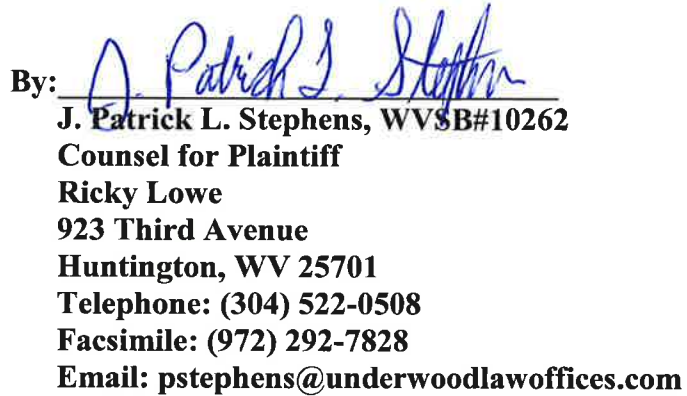 By: J. Patrick L. Stephens
J. Patrick L. Stephens, WVSB#10262
Counsel for Plaintiff
Ricky Lowe
923 Third Avenue
Huntington, WV 25701
Telephone: (304) 522-0508
Facsimile: (972) 292-7828
Email: pstephens@underwoodlawoffices.com